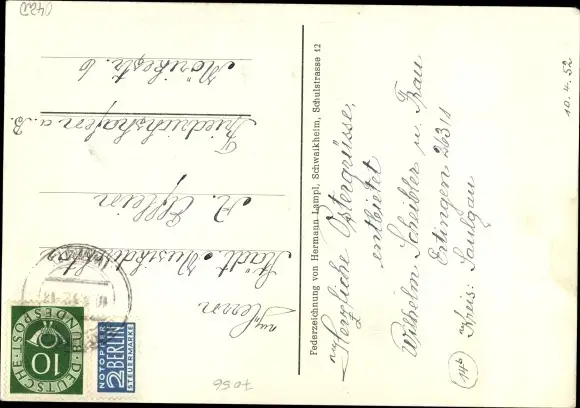 Herzliche Ostergrüsse,
entbietet
Wilhelm Scheibler u. Frau
Ertingen 263/1
(14b) Kreis: Saulgau
10.4.52
Federzeichnung von Hermann Lampl, Schwaikheim, Schulstrasse 12
Herrn
Städt. Musikdirektor
Friedrichshafen a. B.
Mörikestr. 6
DEUTSCHE BUNDESPOST
10
NOTOPFER
2 BERLIN
STEUERMARKE
7056